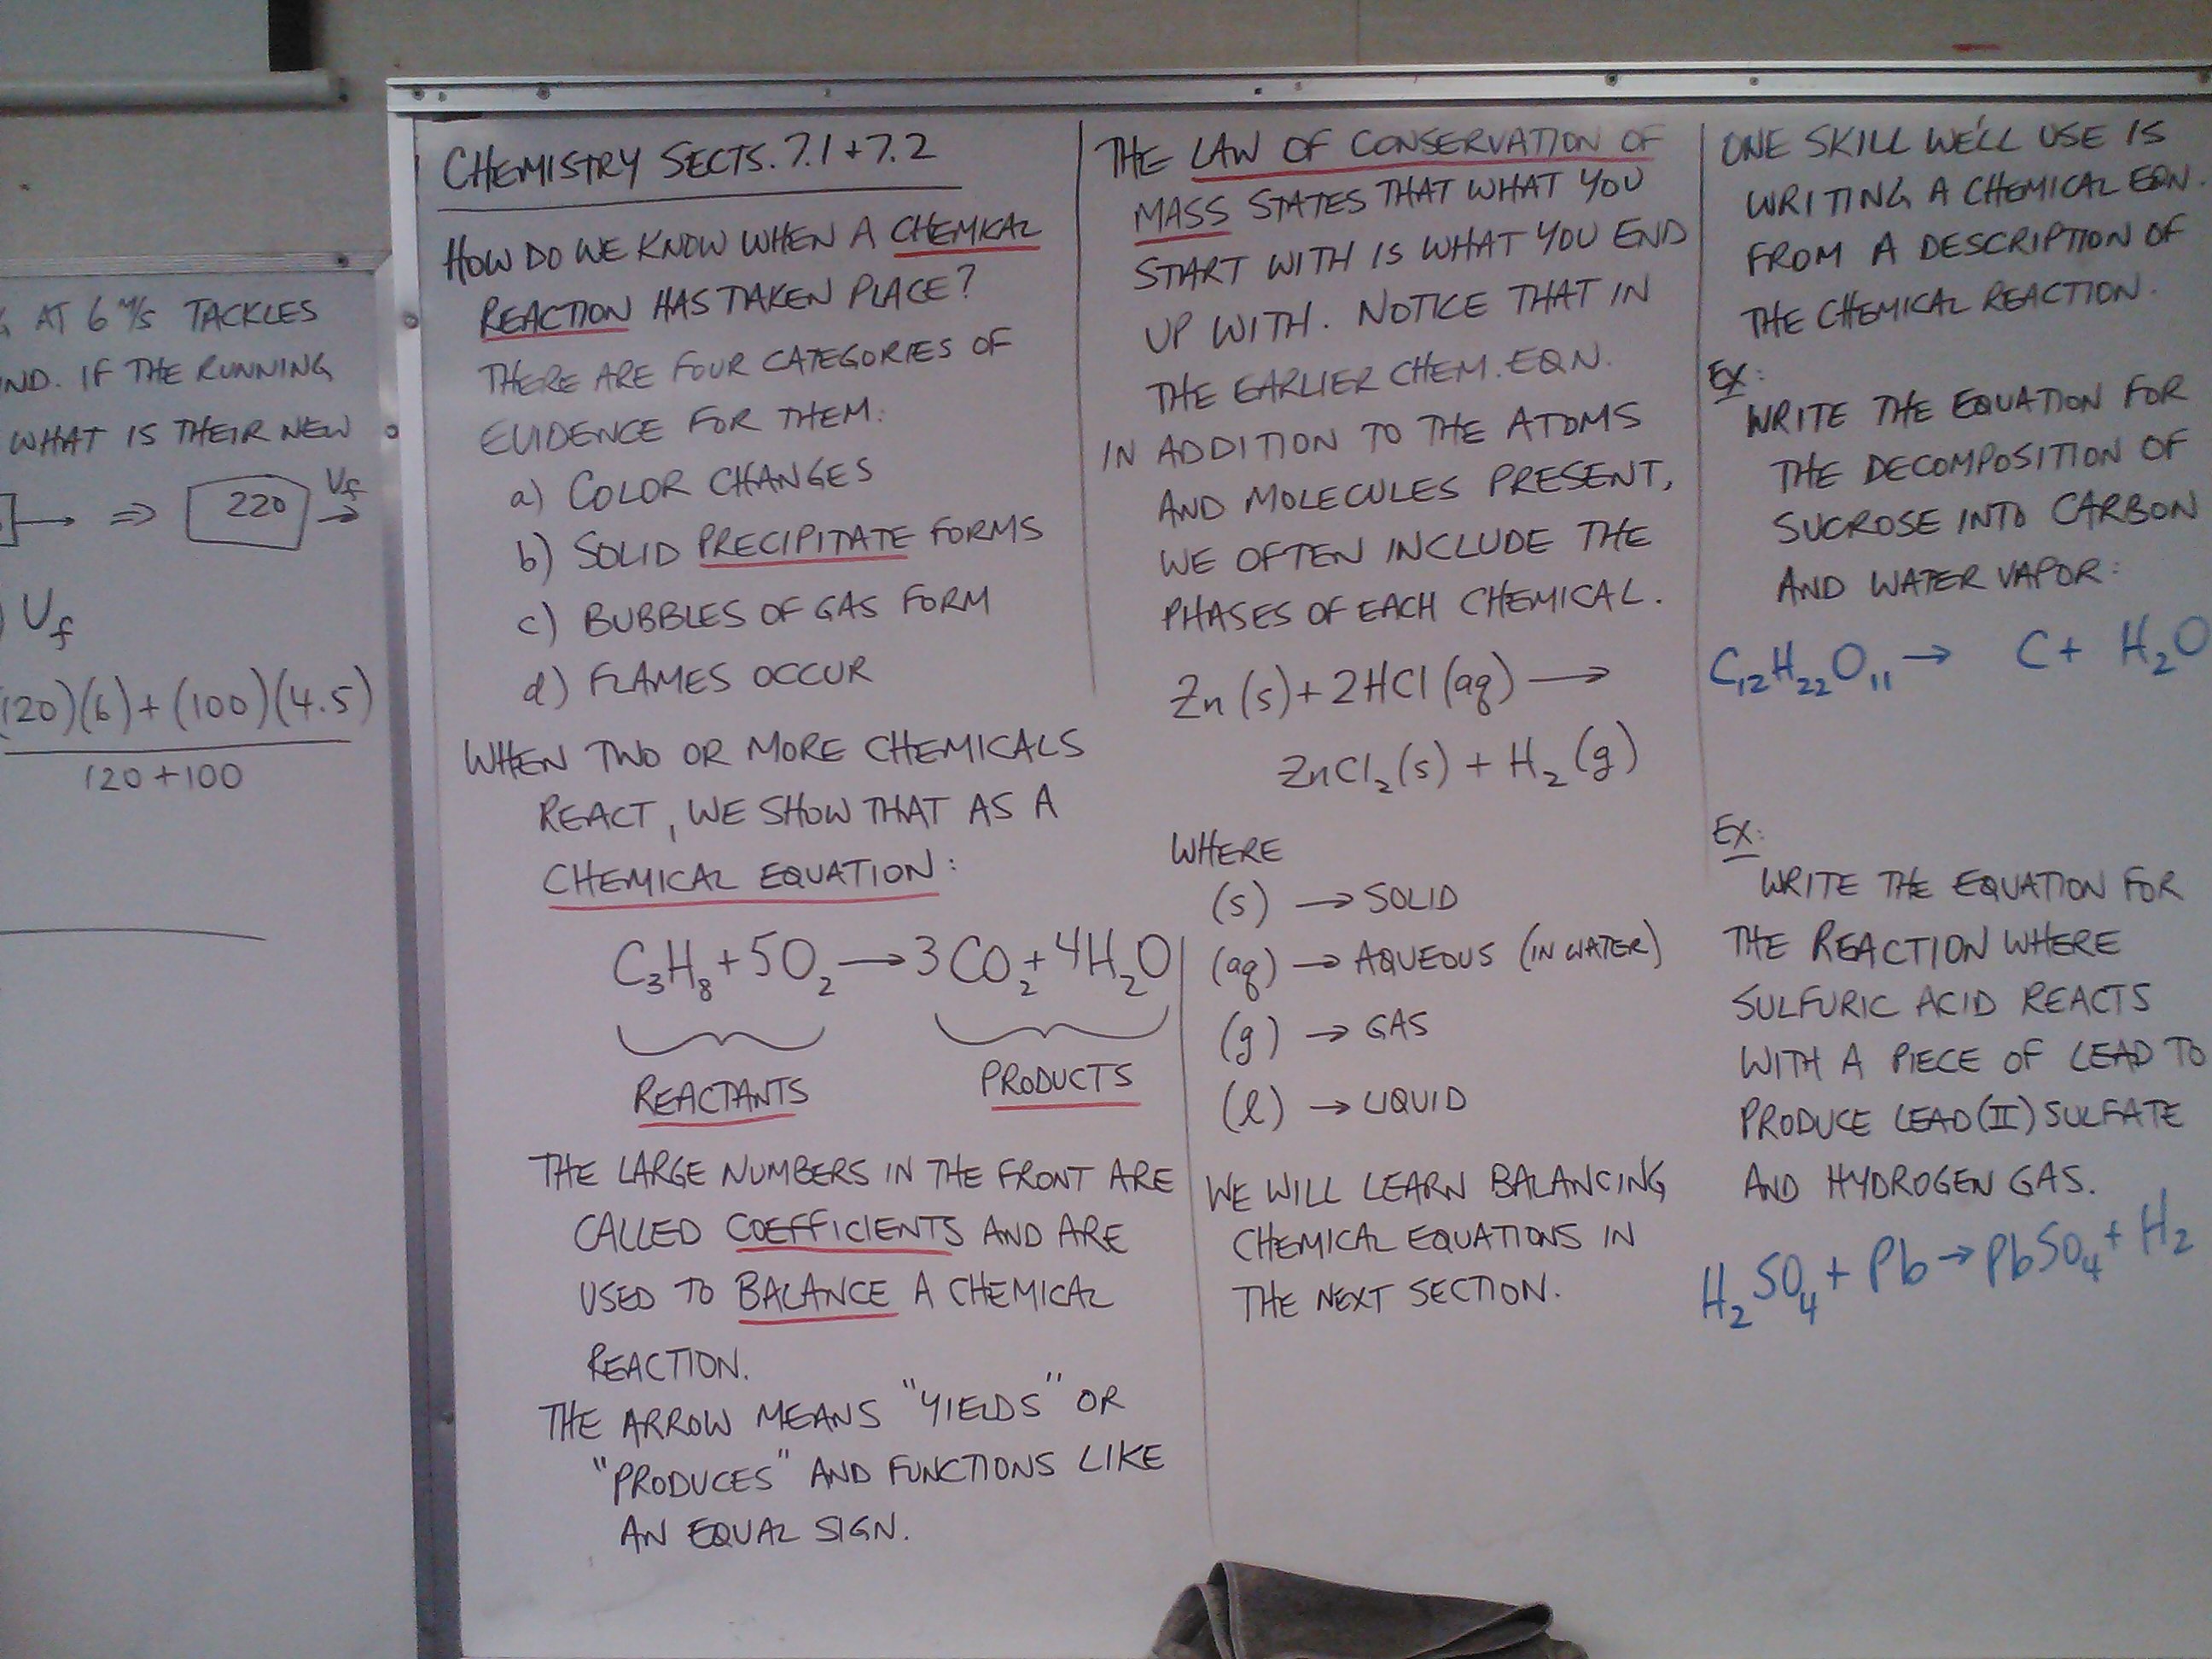 AT 6 m/s TACKLES
ND. IF THE RUNNING
WHAT IS THEIR NEW
⇒ 220 Vf
Vf
(120)(6)+(100)(4.5)
120+100
CHEMISTRY SECTS. 7.1+7.2
HOW DO WE KNOW WHEN A CHEMICAL
REACTION HAS TAKEN PLACE?
THERE ARE FOUR CATEGORIES OF
EVIDENCE FOR THEM:
a) COLOR CHANGES
b) SOLID PRECIPITATE FORMS
c) BUBBLES OF GAS FORM
d) FLAMES OCCUR
WHEN TWO OR MORE CHEMICALS
REACT, WE SHOW THAT AS A
CHEMICAL EQUATION:
C₃H₈+5O₂→3CO₂+4H₂O
REACTANTS PRODUCTS
THE LARGE NUMBERS IN THE FRONT ARE
CALLED COEFFICIENTS AND ARE
USED TO BALANCE A CHEMICAL
REACTION.
THE ARROW MEANS "YIELDS" OR
"PRODUCES" AND FUNCTIONS LIKE
AN EQUAL SIGN.
THE LAW OF CONSERVATION OF
MASS STATES THAT WHAT YOU
START WITH IS WHAT YOU END
UP WITH. NOTICE THAT IN
THE EARLIER CHEM. EQN.
IN ADDITION TO THE ATOMS
AND MOLECULES PRESENT,
WE OFTEN INCLUDE THE
PHASES OF EACH CHEMICAL.
Zn(s)+2HCl(aq)→
ZnCl₂(s)+H₂(g)
WHERE
(s) → SOLID
(aq) → AQUEOUS (IN WATER)
(g) → GAS
(l) → LIQUID
WE WILL LEARN BALANCING
CHEMICAL EQUATIONS IN
THE NEXT SECTION.
ONE SKILL WE'LL USE IS
WRITING A CHEMICAL EQN.
FROM A DESCRIPTION OF
THE CHEMICAL REACTION.
EX:
WRITE THE EQUATION FOR
THE DECOMPOSITION OF
SUCROSE INTO CARBON
AND WATER VAPOR:
C₁₂H₂₂O₁₁→ C+ H₂O
EX:
WRITE THE EQUATION FOR
THE REACTION WHERE
SULFURIC ACID REACTS
WITH A PIECE OF LEAD TO
PRODUCE LEAD(II) SULFATE
AND HYDROGEN GAS.
H₂SO₄+Pb→PbSO₄+H₂